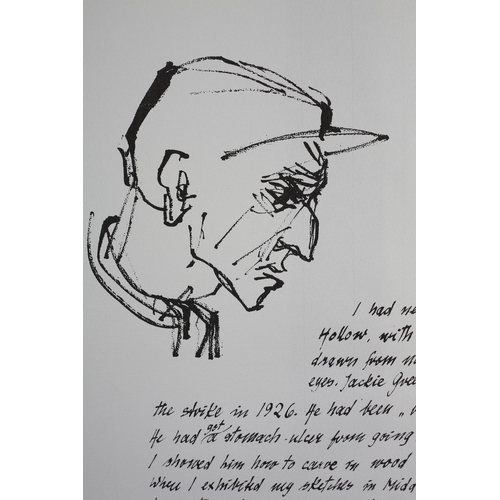 I had ne
Hollow, with
drawn from
eyes. Jackie Gree
the strike in 1926. He had been "
He had got a stomach-ulcer from going
I showed him how to carve in wood
When I exhibited my sketches in Midd